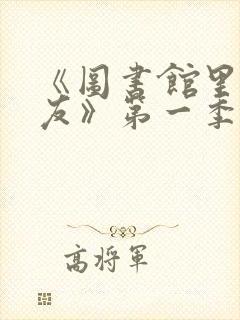 《圖書館里
友》第一季
高將軍